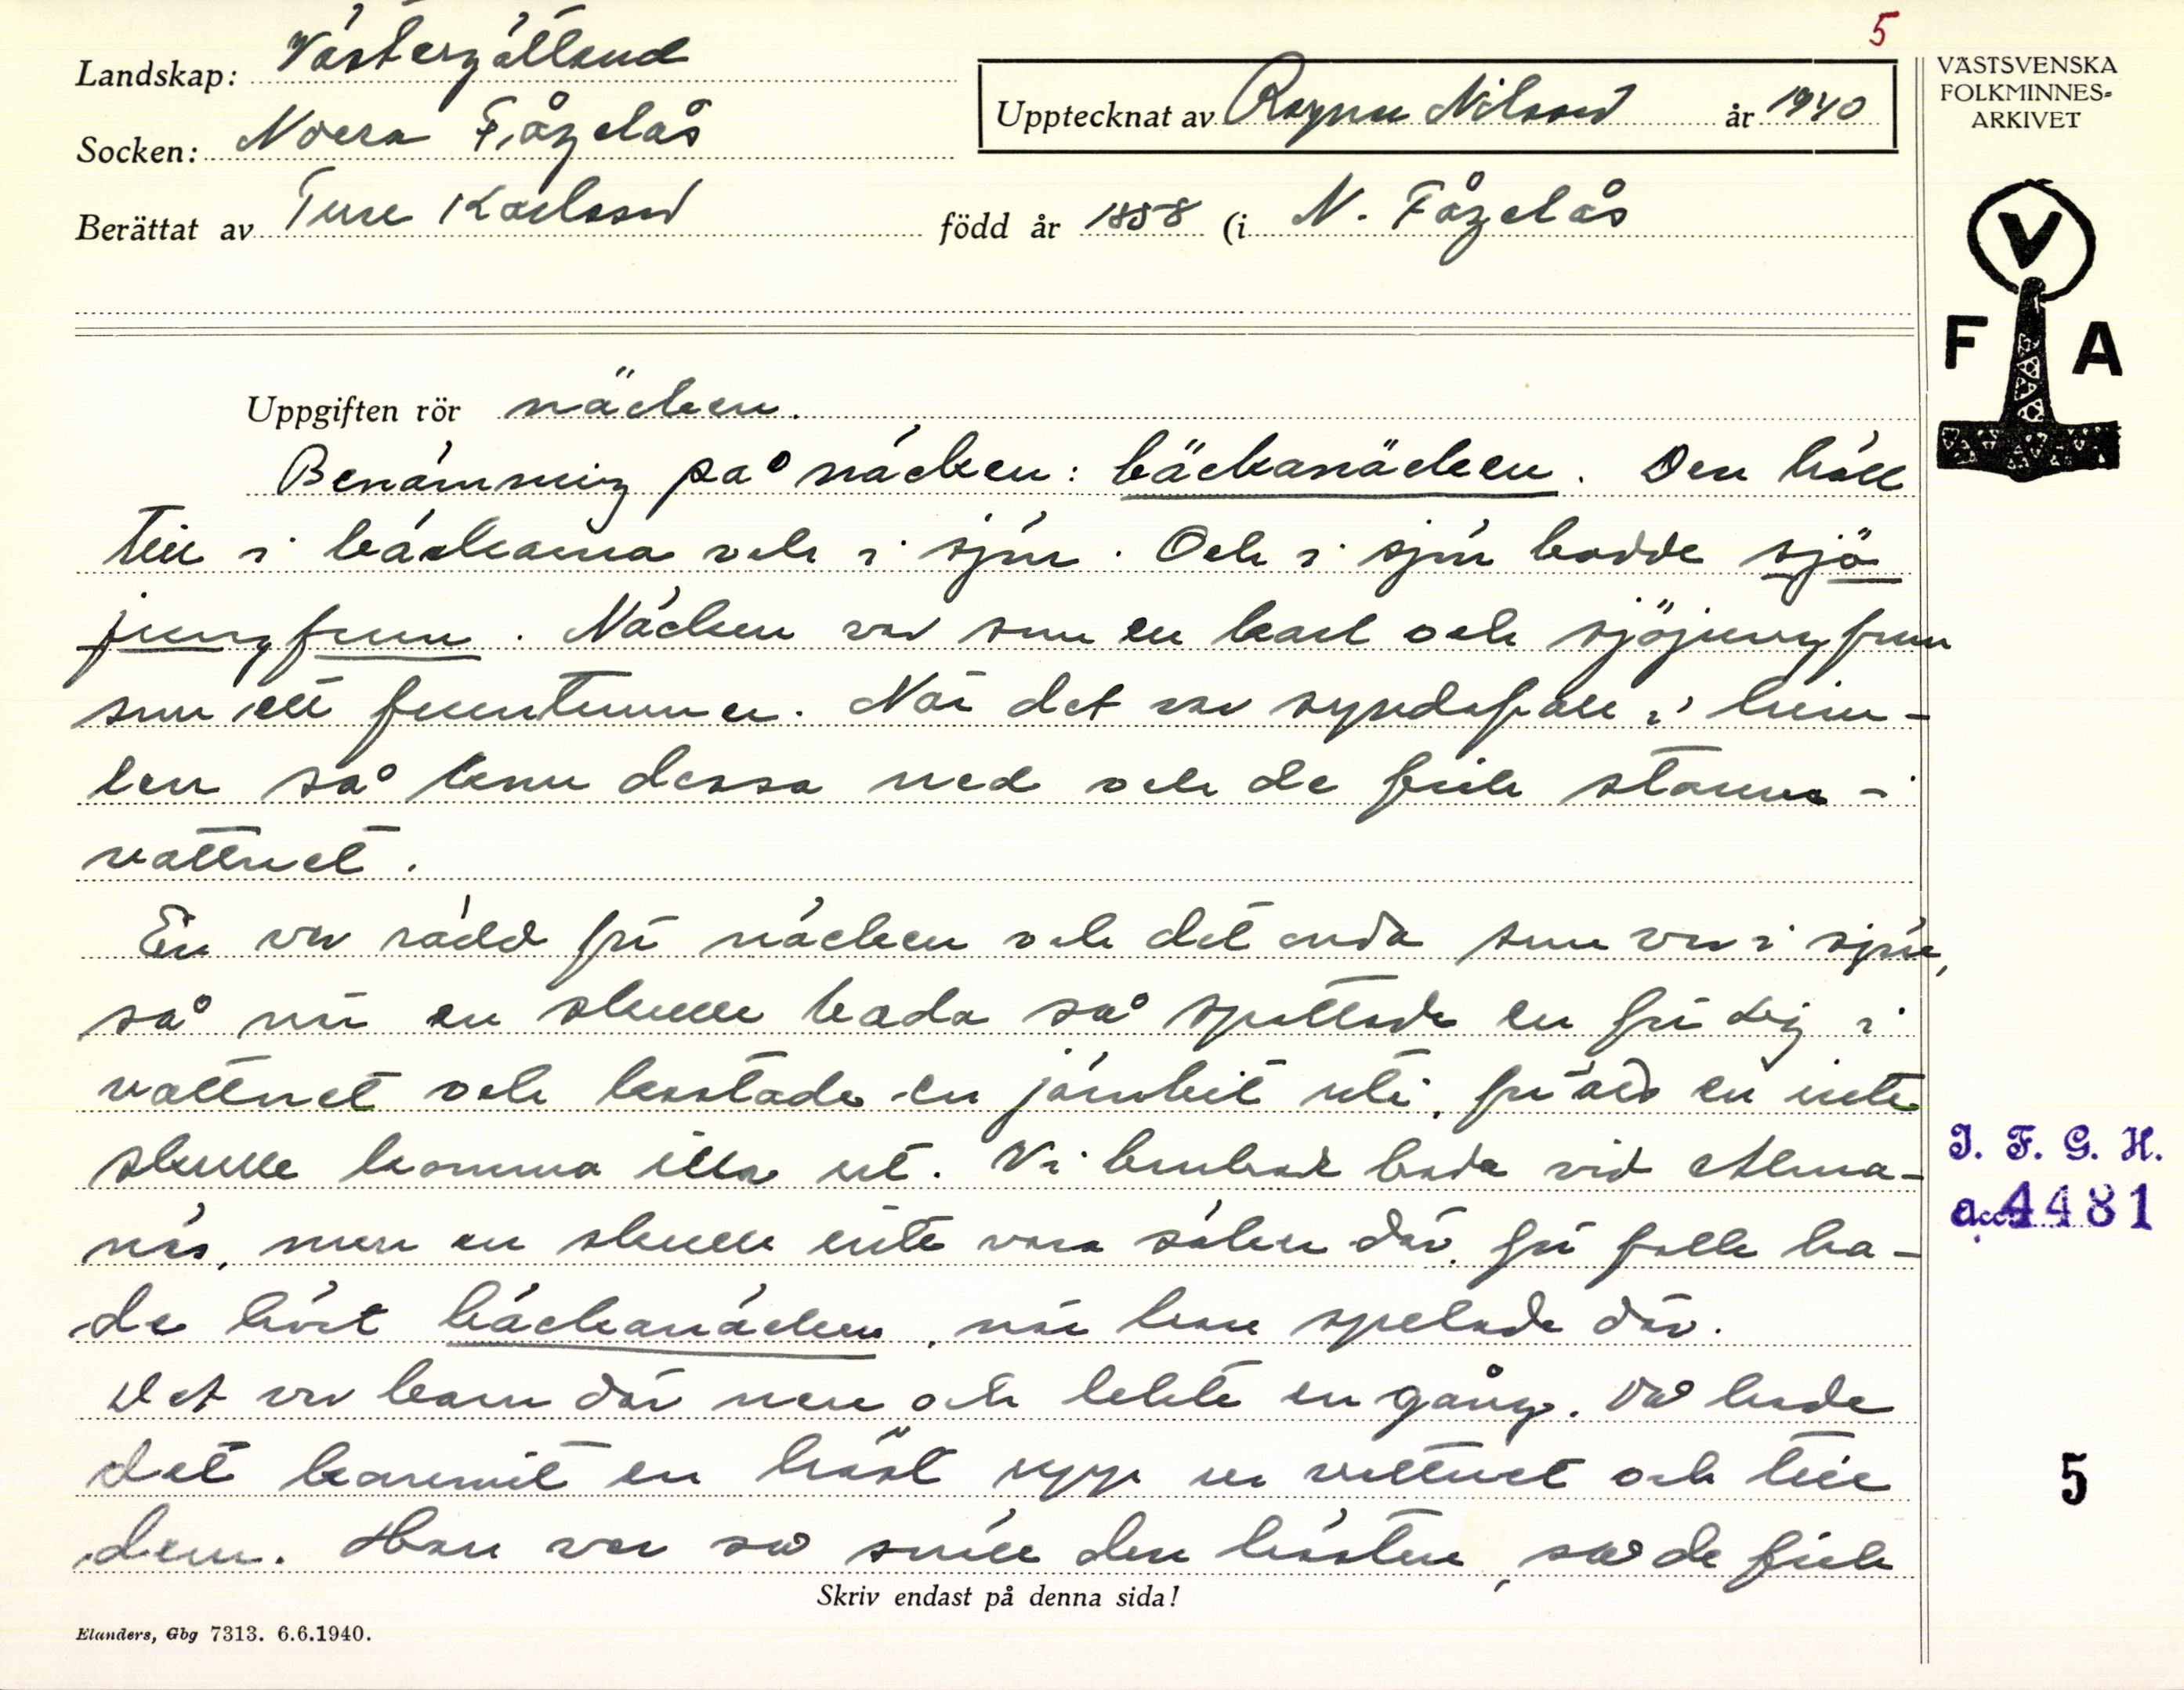 5
Landskap: Västergötland
Upptecknat av Ragnar Nilsson år 1940
VÄSTSVENSKA
FOLKMINNES-
ARKIVET
Socken: Norra Fågelås
Berättat av Ture Karlsson född år 1858 (i N. Fågelås
V
F A
Uppgiften rör näcken.
Benämning på näcken: bäckanäcken. Den höll
till i bäckarna och i sjön. Och i sjön bodde sjö
jungfrun. Näcken var som en karl och sjöjungfrun
som ett fruntimmer. När det var syndafall i him-
len så kom dessa ned och de fick stanna i
vattnet.
En var rädd för näcken och det onda som var i sjön,
så när en skulle bada så spottade en för sig i
vattnet och kastade en järnbit uti, för att en inte
skulle komma illa ut. Vi brukade bada vid Alma-
näs, men en skulle inte vara säker där, för folk ha-
de hört bäckanäcken, när han spelade där.
Det var barn där nere och lekte en gång. Då hade
det kommit en häst upp ur vattnet och till
dem. Han var så snäll den hästen, så de fick
Skriv endast på denna sida!
Elanders, Gbg 7313. 6.6.1940.
I. F. G. H.
acc. 4481
5